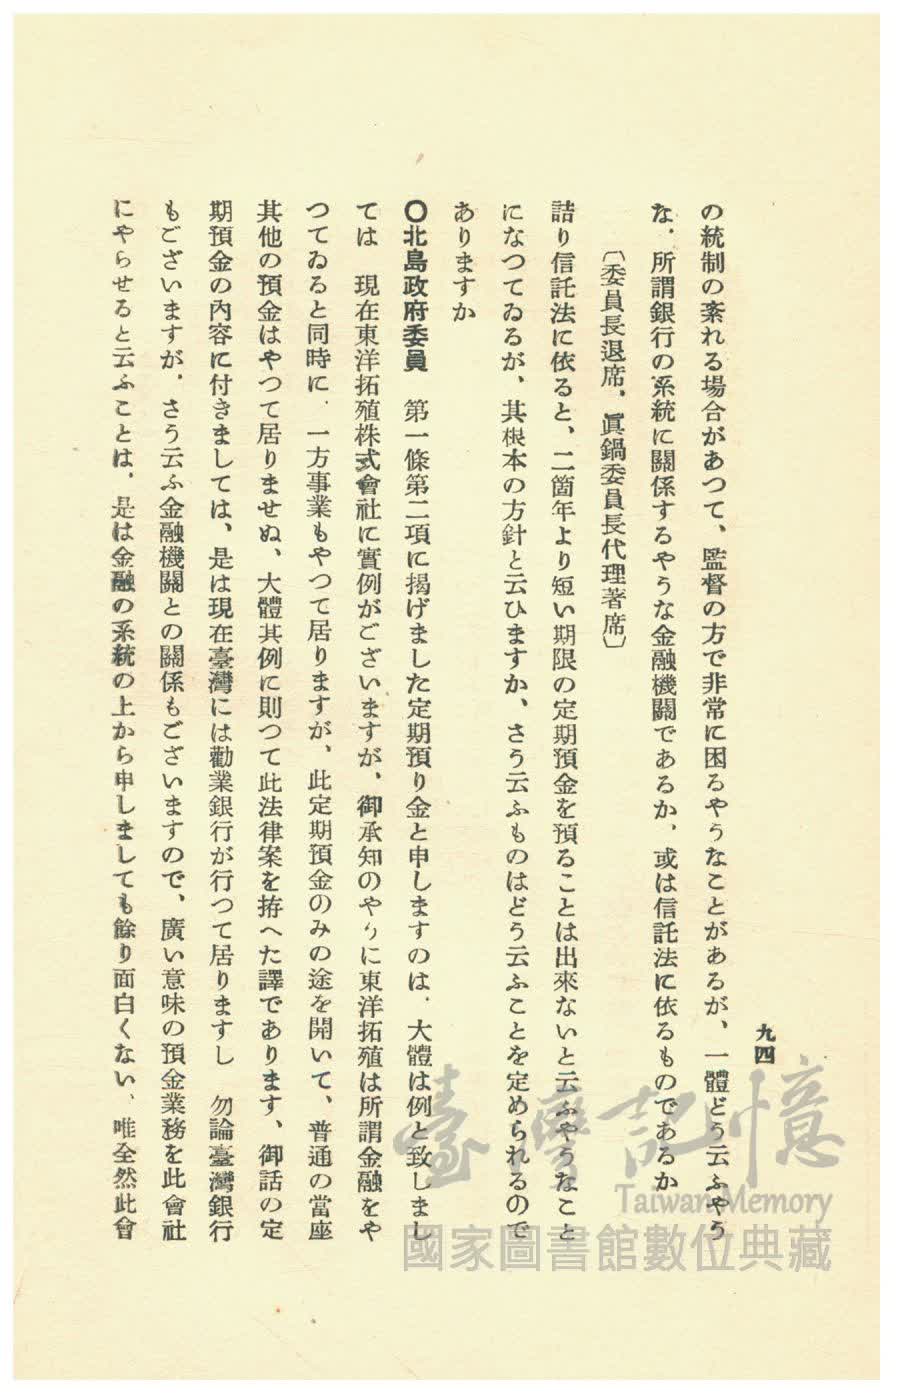 九四
の統制の紊れる場合があつて、監督の方で非常に困るやうなことがあるが、一體どう云ふやう
な、所謂銀行の系統に關係するやうな金融機關であるか、或は信託法に依るものであるか
〔委員長退席、眞鍋委員長代理著席〕
詰り信託法に依ると、二箇年より短い期限の定期預金を預ることは出來ないと云ふやうなこと
になつてゐるが、其根本の方針と云ひますか、さう云ふものはどう云ふことを定められるので
ありますか
〇北島政府委員　第一條第二項に揭げました定期預り金と申しますのは、大體は例と致しまし
ては　現在東洋拓殖株式會社に實例がございますが、御承知のやうに東洋拓殖は所謂金融をや
つてゐると同時に、一方事業もやつて居りますが、此定期預金のみの途を開いて、普通の當座
其他の預金はやつて居りませぬ、大體其例に則つて此法律案を拵へた譯であります、御話の定
期預金の內容に付きましては、是は現在臺灣には勸業銀行が行つて居りますし　勿論臺灣銀行
もございますが、さう云ふ金融機關との關係もございますので、廣い意味の預金業務を此會社
にやらせると云ふことは、是は金融の系統の上から申しましても餘り面白くない、唯全然此會
臺灣記憶
Taiwan Memory
國家圖書館數位典藏